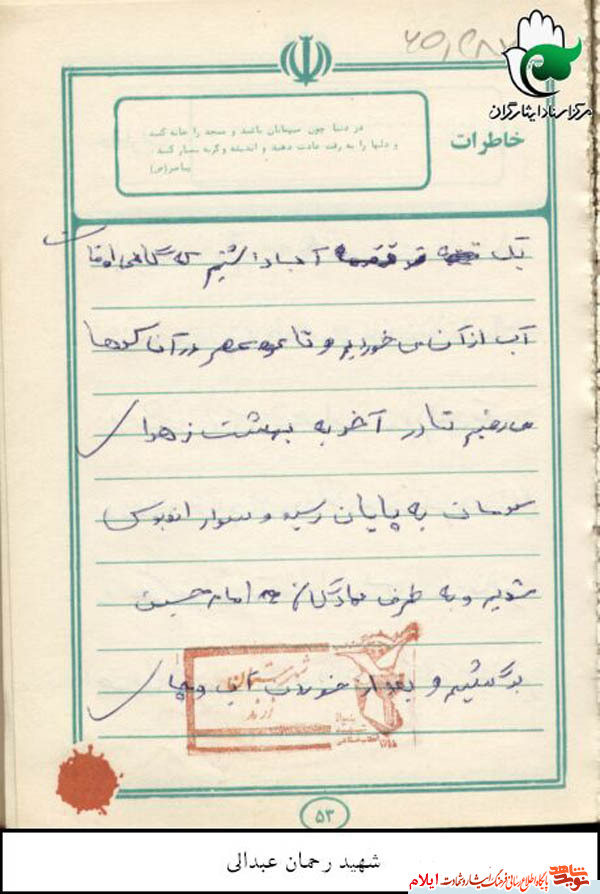 مرکز اسناد ایثارگران
خاطرات
در دنیا چون میهمانان باشید و مسجد را خانه کنید
و دلها را به رقت عادت دهید و اندیشه و گریه بسیار کنید.
پیامبر (ص)
یک قمقمه آنجا داشتیم که گاهی اوقات
آب از آن می خوردیم و تا عصر در آن کوهها
می رفتیم تا در آخر به بهشت زهرا
به پایان رسید و سوار اتوبوس
شدیم و به طرف پادگان امام حسین
برگشتیم و بعد از خوردن آب و چای
شهرستان
۵۳
شهید رحمان عبدالی
نوید شاهد
پایگاه اطلاع رسانی فرهنگ ایثار و شهادت ایلام